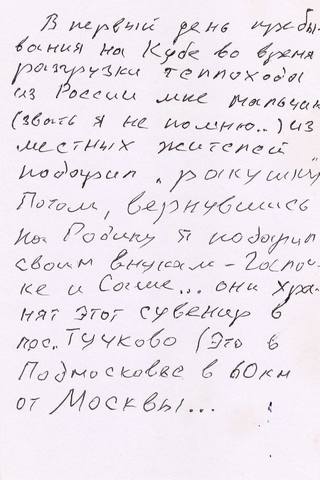 В первый день пребы-
вания на Кубе во время
разгрузки теплохода
из России мне мальчик
(звать я не помню..) из
местных жителей
подарил „ракушки"
Потом, вернувшись
на Родину я подарил
своим внукам - Гаспоч-
ке и Саше... они хра-
нят этот сувенир в
пос. Тучково (Это в
Подмосковье в 60км
от Москвы...